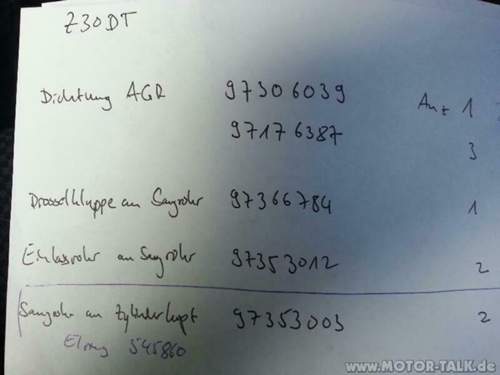 Z30DT
Dichtung AGR 97306039 Anz 1
97176387 3
Drosselklappe an Saugrohr 97366784 1
Einlassrohr an Saugrohr 97353012 2
Saugrohr an Zylinderkopf 97353003 2
Elring 545860
www.MOTOR-TALK.de